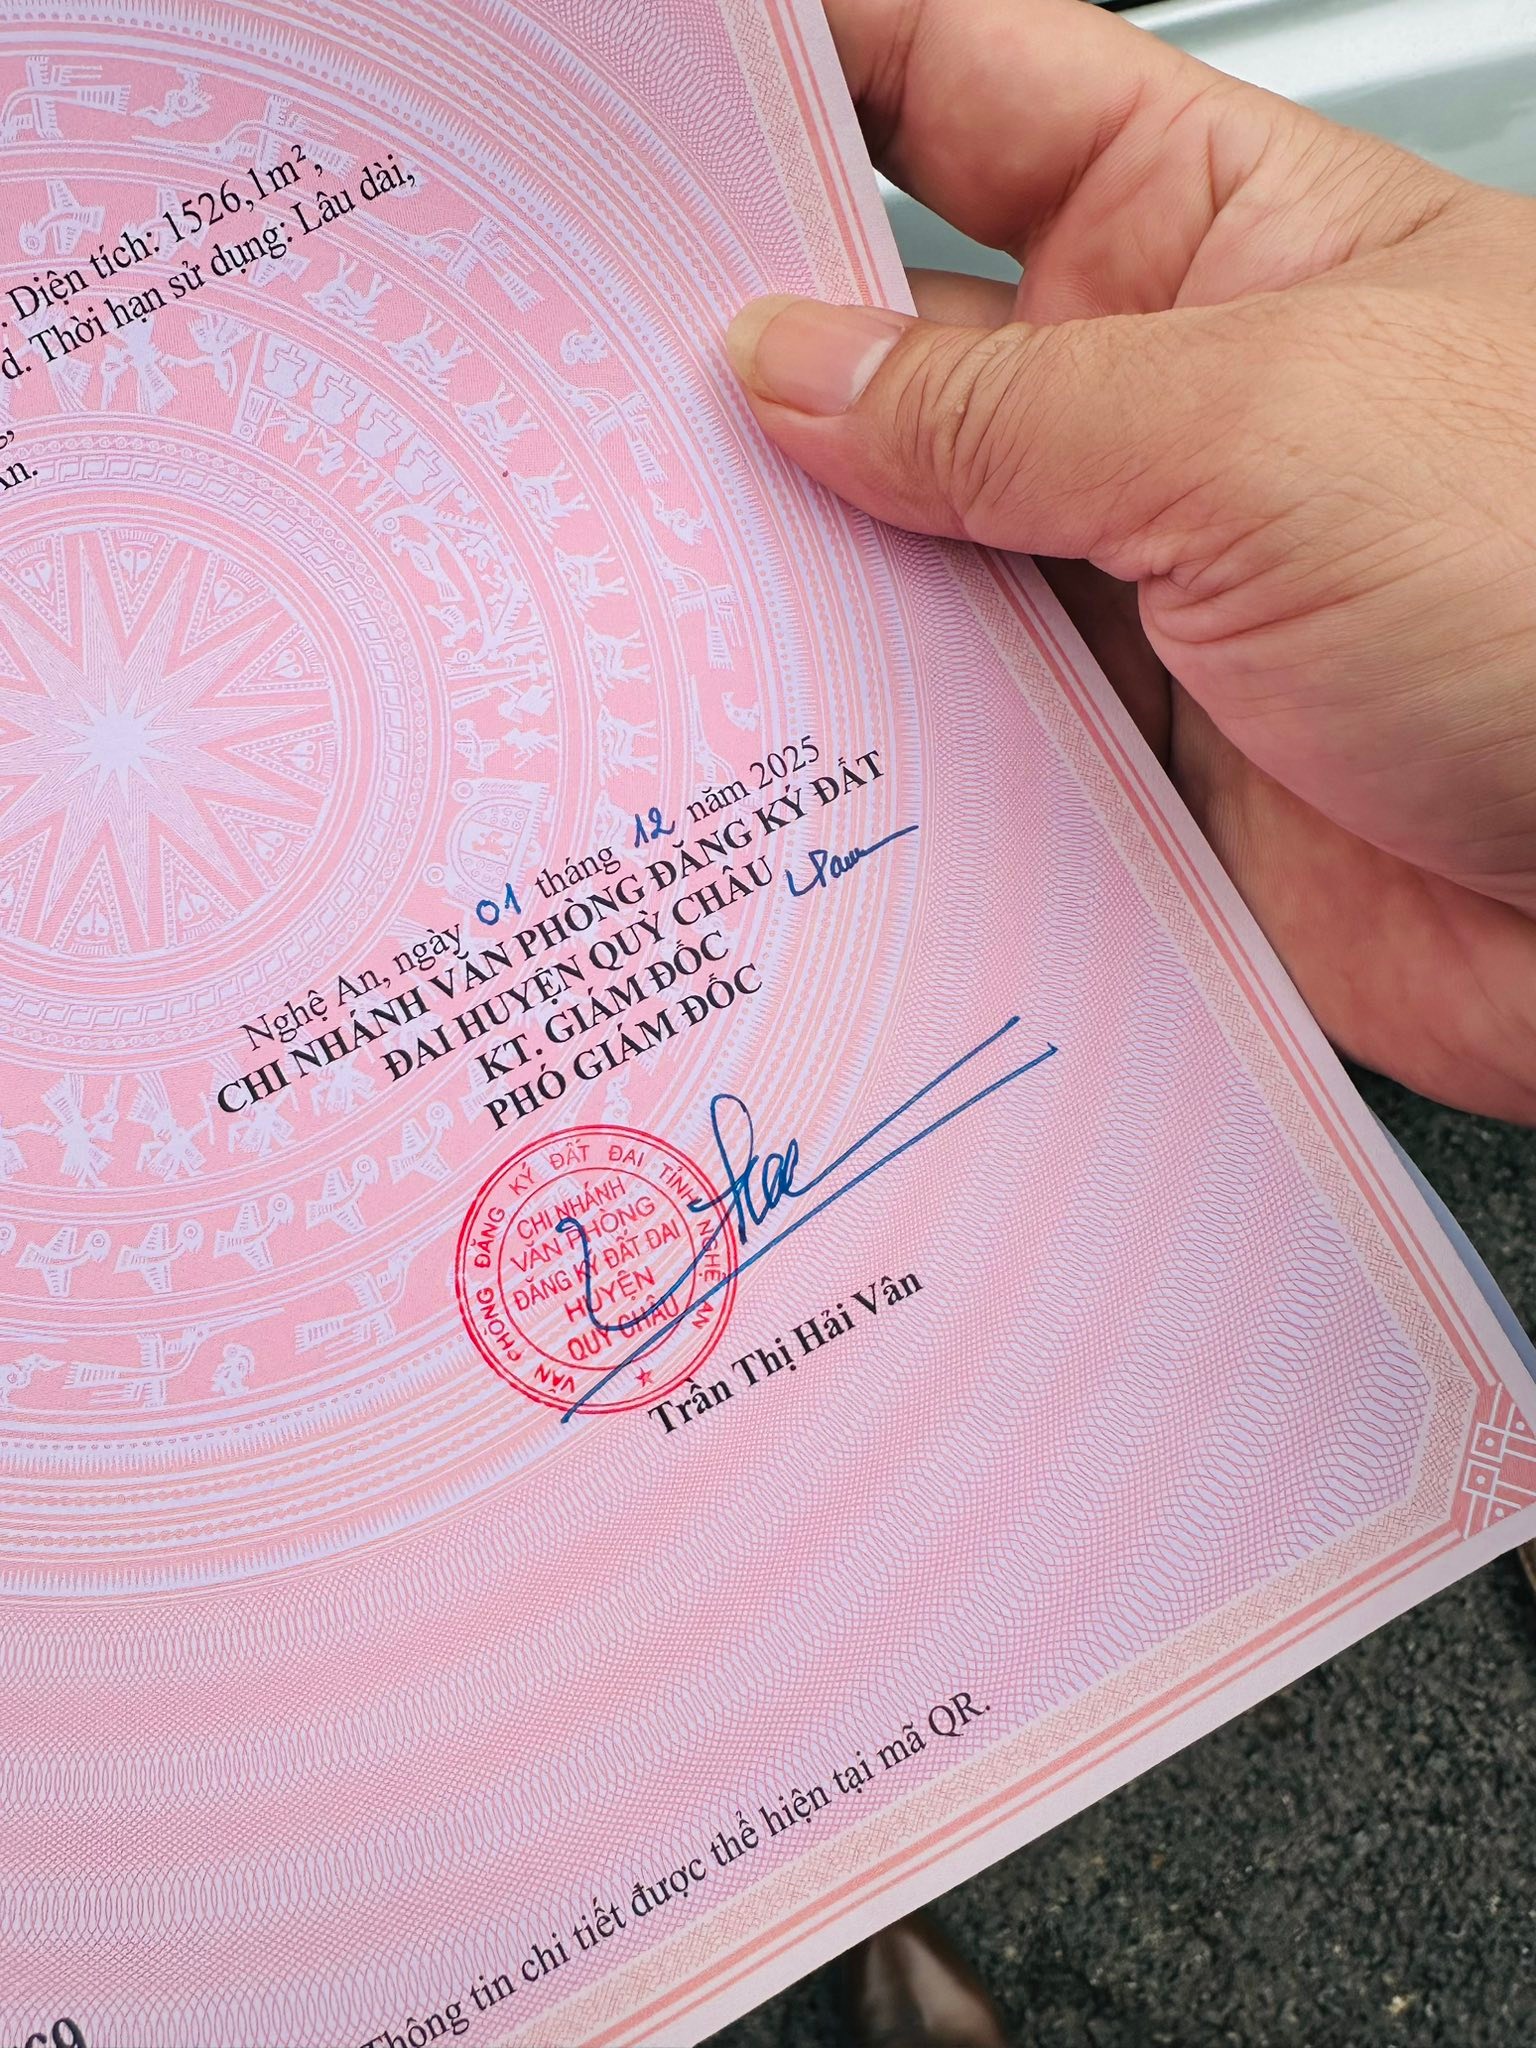 . Diện tích: 1526,1m²,
d. Thời hạn sử dụng: Lâu dài,
Nghệ An, ngày 01 tháng 12 năm 2025
CHI NHÁNH VĂN PHÒNG ĐĂNG KÝ ĐẤT
ĐAI HUYỆN QUỲ CHÂU
KT. GIÁM ĐỐC
PHÓ GIÁM ĐỐC
VĂN PHÒNG ĐĂNG KÝ ĐẤT ĐAI TỈNH NGHỆ AN
CHI NHÁNH
VĂN PHÒNG
ĐĂNG KÝ ĐẤT ĐAI
HUYỆN
QUỲ CHÂU
Trần Thị Hải Vân
Thông tin chi tiết được thể hiện tại mã QR.